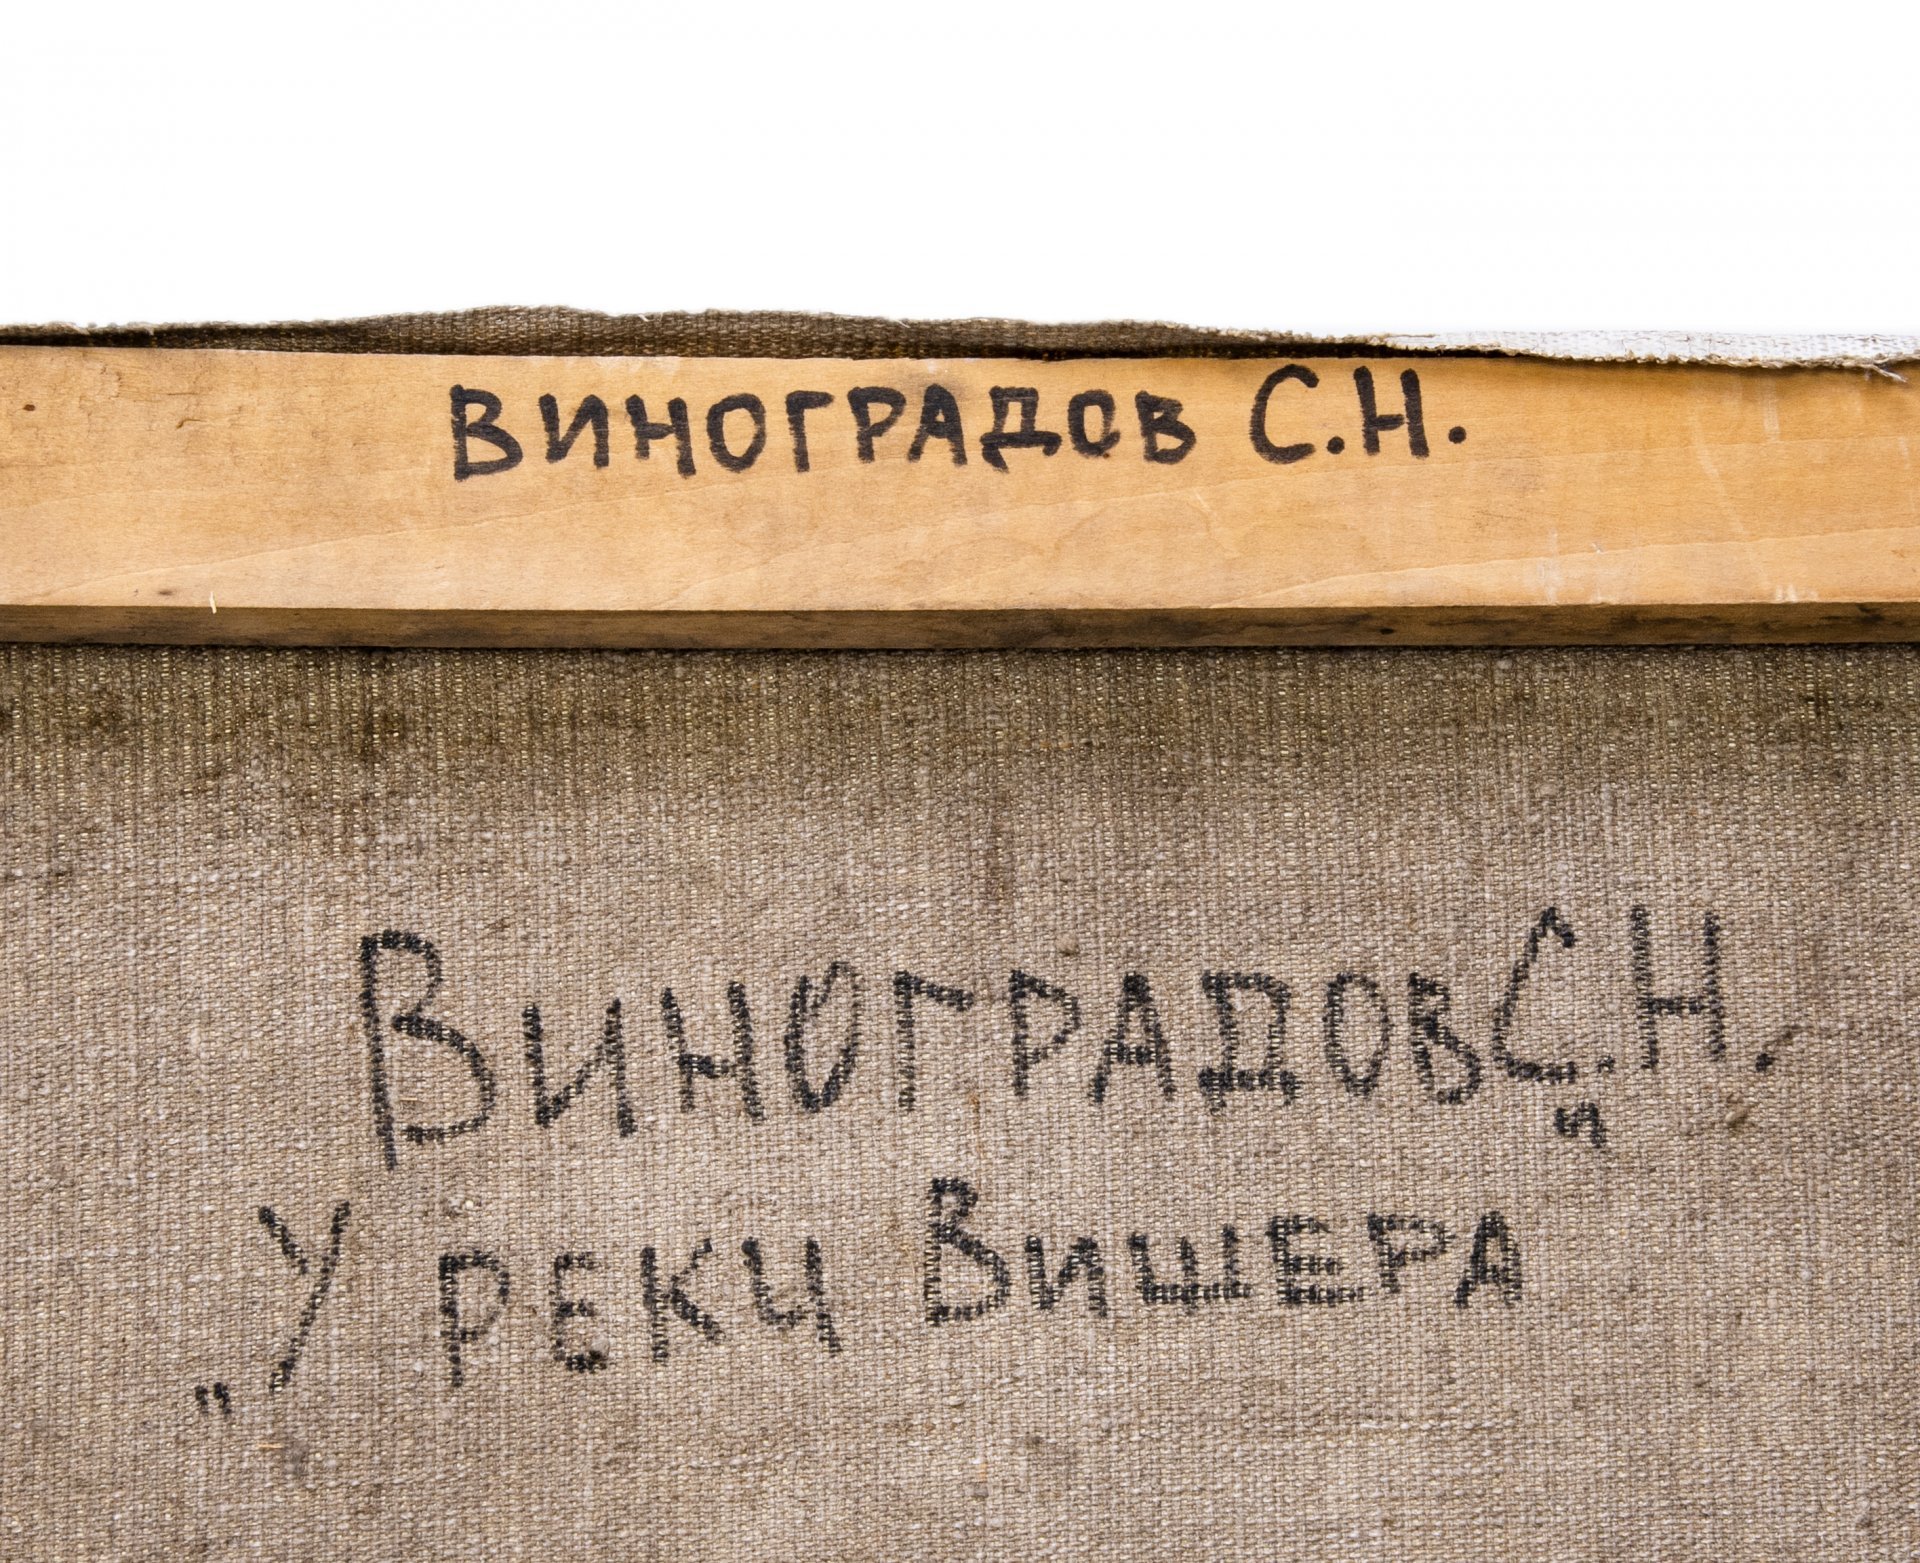 ВИНОГРАДОВ С.Н.
ВИНОГРАДОВ С.Н.
„У РЕКИ ВИШЕРА"